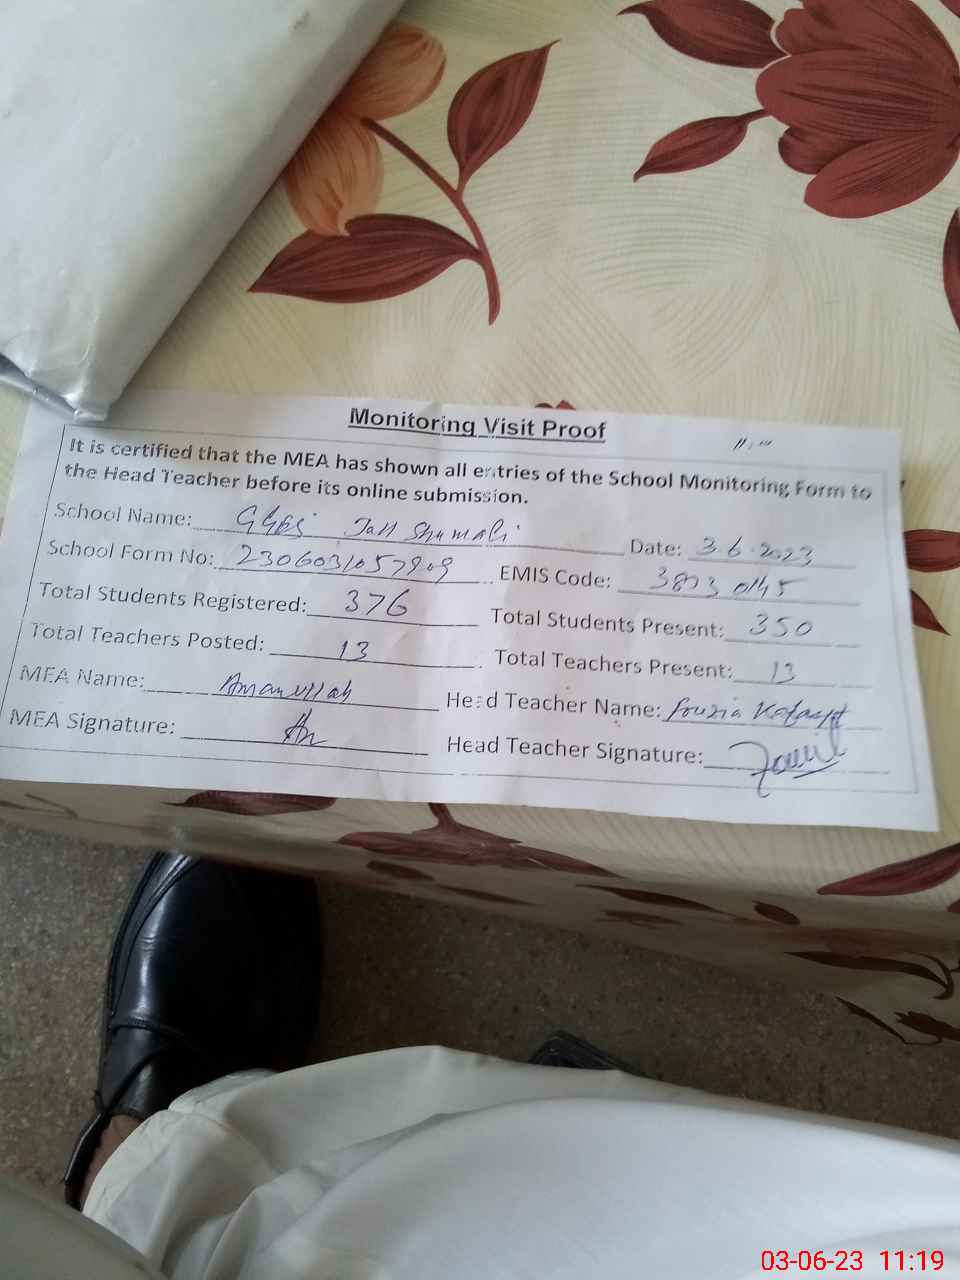 Monitoring Visit Proof
11:10
It is certified that the MEA has shown all entries of the School Monitoring Form to
the Head Teacher before its online submission.
School Name: Jall Shumali Date: 3.6.2023
School Form No: EMIS Code:
Total Students Registered: 376 Total Students Present: 350
Total Teachers Posted: 13 Total Teachers Present: 13
MEA Name: Amanullah Head Teacher Name: Fouzia
MEA Signature: Head Teacher Signature:
03-06-23 11:19